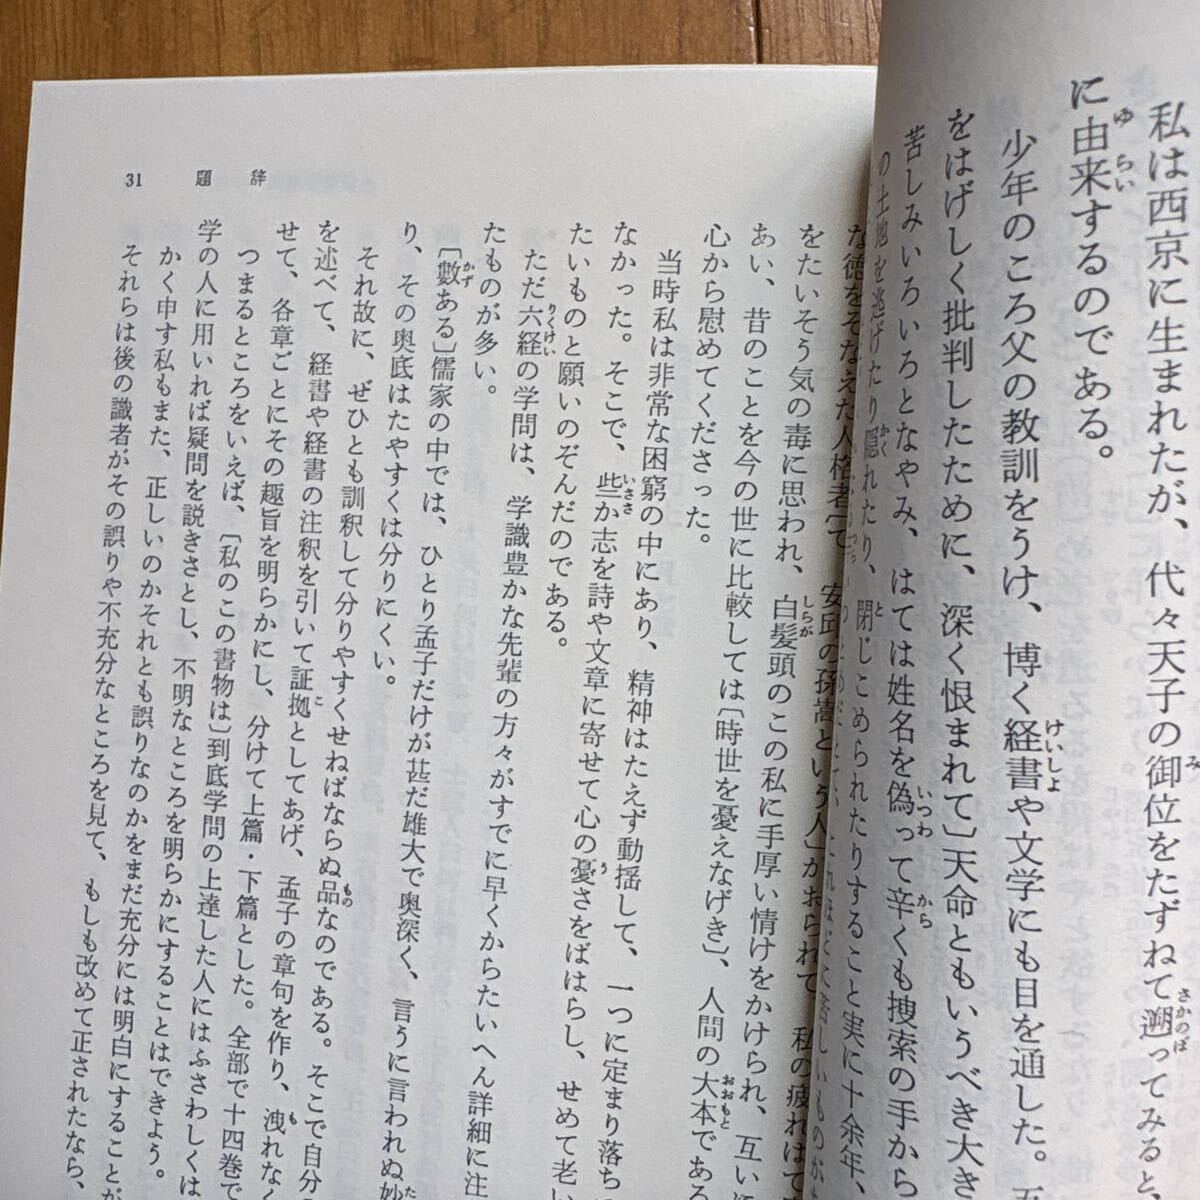 私は西京に生まれたが、代々天子の御位をたずねて遡ってみると
に由来するのである。
少年のころ父の教訓をうけ、博く経書や文学にも目を通した。
をはげしく批判したために、深く恨まれて〕天命ともいうべき大き
苦しみいろいろとなやみ、はては姓名を偽って辛くも捜索の手から
の土地を逃げたり隠れたり、閉じこめられたりすること実に十余年、
な徳をそなえた人格者で 安邱の孫嵩という人〕がおられて 私の疲れはて
をたいそう気の毒に思われ、白髪頭のこの私に手厚い情けをかけられ、互いに
あい、昔のことを今の世に比較しては〔時世を憂えなげき〕、人間の大本である
心から慰めてくださった。
当時私は非常な困窮の中にあり、精神はたえず動揺して、一つに定まり落ち
なかった。そこで、些か志を詩や文章に寄せて心の憂さをばはらし、せめて老い
たいものと願いのぞんだのである。
ただ六経の学問は、学識豊かな先輩の方々がすでに早くからたいへん詳細に注
たものが多い。
〔數ある〕儒家の中では、ひとり孟子だけが甚だ雄大で奥深く、言うに言われぬ妙
り、その奥底はたやすくは分りにくい。
それ故に、ぜひとも訓釈して分りやすくせねばならぬ品なのである。そこで自分の
を述べて、経書や経書の注釈を引いて証拠としてあげ、孟子の章句を作り、洩れなく
せて、各章ごとにその趣旨を明らかにし、分けて上篇・下篇とした。全部で十四巻で
つまるところをいえば、〔私のこの書物は〕到底学問の上達した人にはふさわしくは
学の人に用いれば疑問を説きさとし、不明なところを明らかにすることはできよう。
かく申す私もまた、正しいのかそれとも誤りなのかをまだ充分には明白にすることが
それらは後の識者がその誤りや不充分なところを見て、もしも改めて正されたなら、
31 題辞